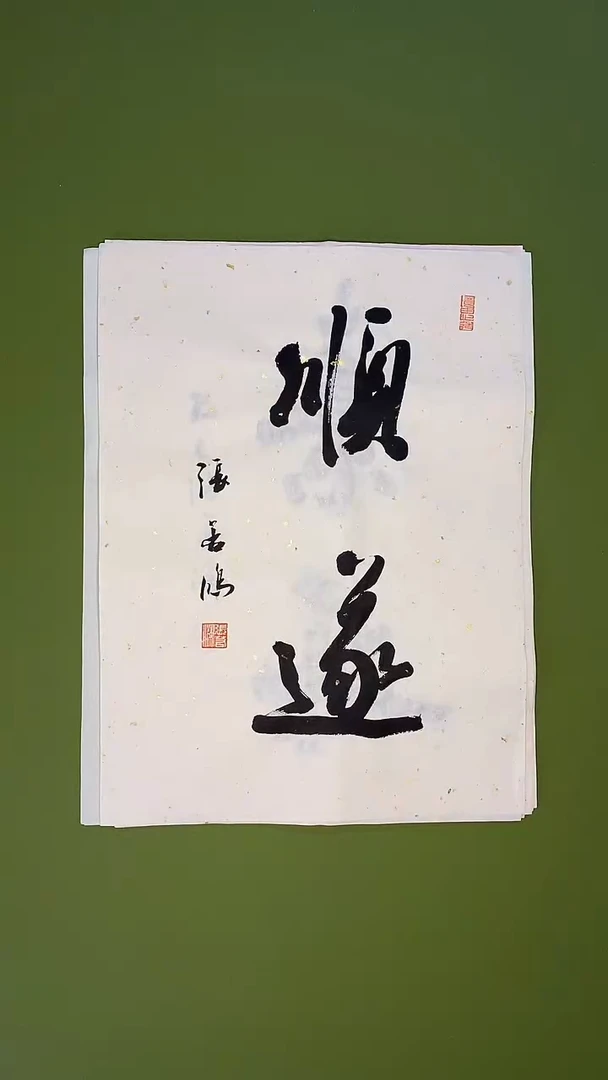 順遂
張善鴻